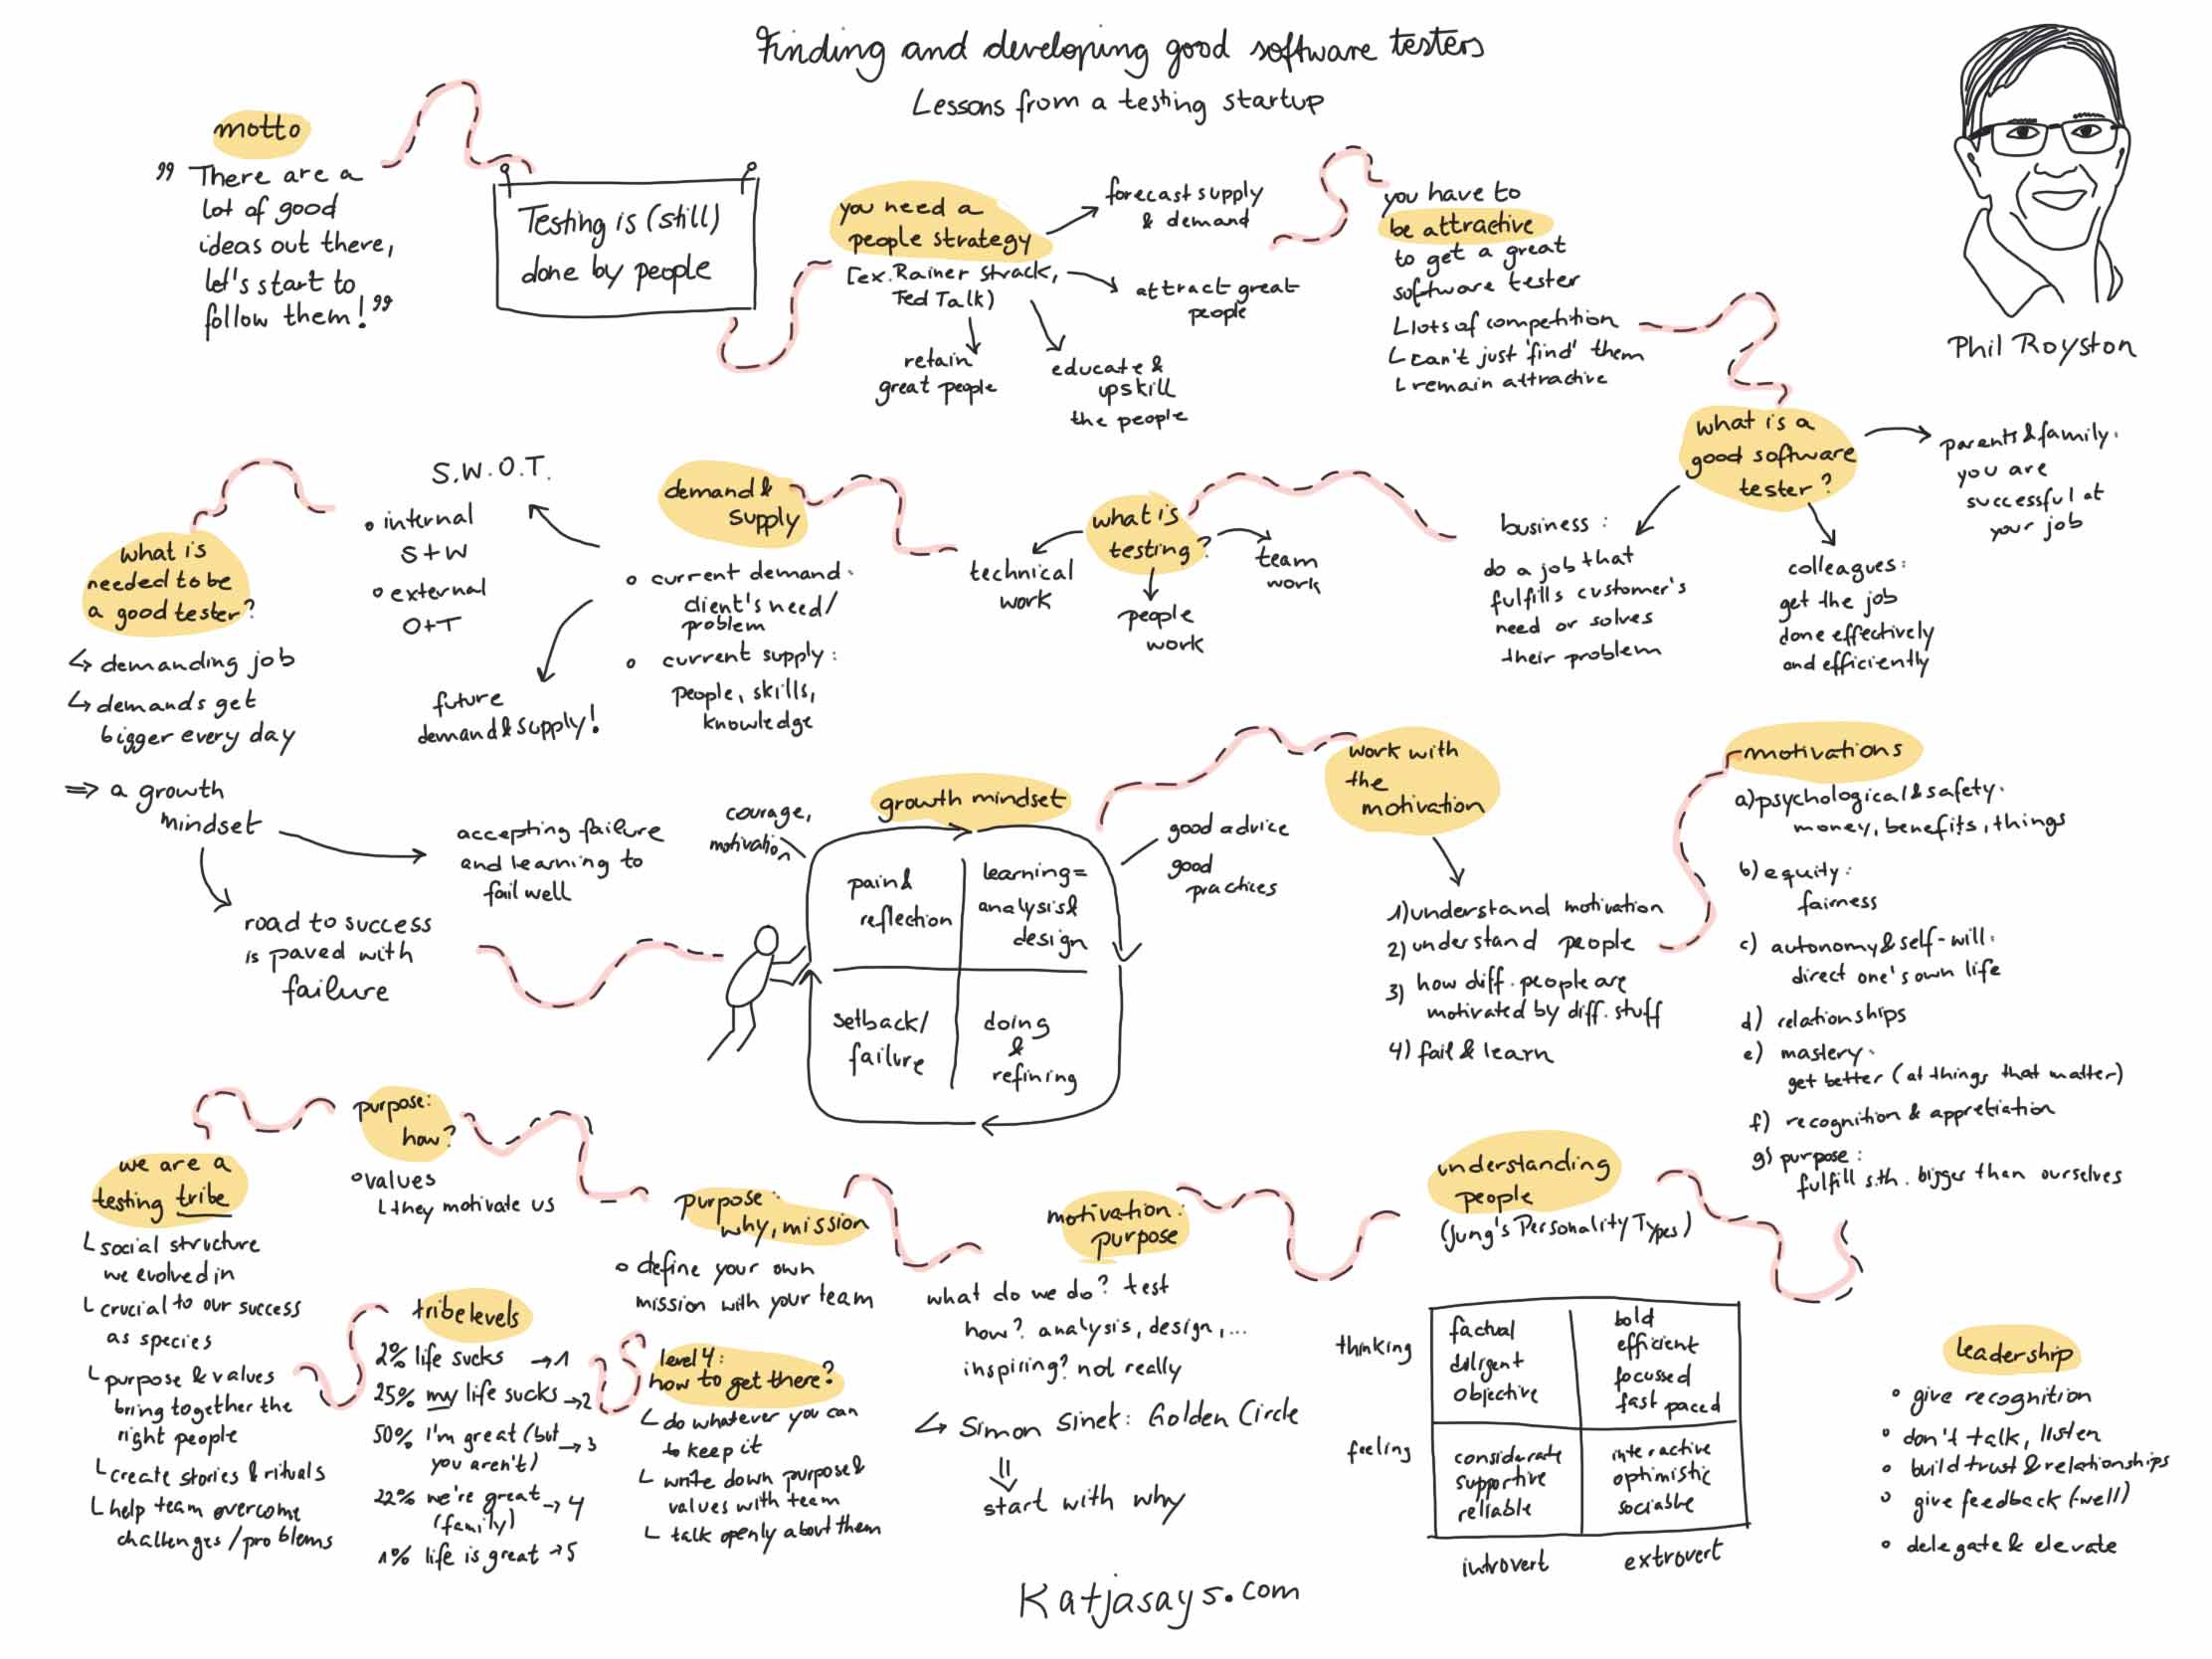 Finding and developing good software testers
Lessons from a testing startup
Phil Royston
motto
"There are a
lot of good
ideas out there,
let's start to
follow them!"
Testing is (still)
done by people
you need a
people strategy
[ex. Rainer Strack,
Ted Talk)
forecast supply
& demand
attract great
people
educate &
upskill
the people
retain
great people
you have to
be attractive
to get a great
software tester
lots of competition
can't just 'find' them
remain attractive
what is a
good software
tester?
parents & family:
you are
successful at
your job
colleagues:
get the job
done effectively
and efficiently
business:
do a job that
fulfills customer's
need or solves
their problem
what is
testing?
team
work
people
work
technical
work
demand &
supply
current demand:
client's need/
problem
current supply:
people, skills,
knowledge
S.W.O.T.
internal
S+W
external
O+T
future
demand & supply!
what is
needed to be
a good tester?
demanding job
demands get
bigger every day
⇒ a growth
mindset
accepting failure
and learning to
fail well
road to success
is paved with
failure
growth mindset
courage,
motivation
good advice
good
practices
pain &
reflection
learning =
analysis &
design
setback/
failure
doing
&
refining
work with
the
motivation
1) understand motivation
2) understand people
3) how diff. people are
motivated by diff. stuff
4) fail & learn
motivations
a) psychological & safety:
money, benefits, things
b) equity:
fairness
c) autonomy & self-will:
direct one's own life
d) relationships
e) mastery:
get better (at things that matter)
f) recognition & appretiation
g) purpose:
fulfill s.th. bigger than ourselves
leadership
give recognition
don't talk, listen
build trust & relationships
give feedback (-well)
delegate & elevate
understanding
people
(Jung's Personality Types)
thinking
factual
diligent
objective
bold
efficient
focussed
fast paced
feeling
considerate
supportive
reliable
interactive
optimistic
sociable
introvert
extrovert
motivation:
purpose
what do we do? test
how? analysis, design, ...
inspiring? not really
Simon Sinek: Golden Circle
start with why
purpose:
why, mission
define your own
mission with your team
purpose:
how?
values
they motivate us
we are a
testing tribe
social structure
we evolved in
crucial to our success
as species
purpose & values
bring together the
right people
create stories & rituals
help team overcome
challenges/problems
tribe levels
2% life sucks → 1
25% my life sucks → 2
50% I'm great (but → 3
you aren't)
22% we're great → 4
(family)
1% life is great → 5
level 4:
how to get there?
do whatever you can
to keep it
write down purpose &
values with team
talk openly about them
Katjasays.com